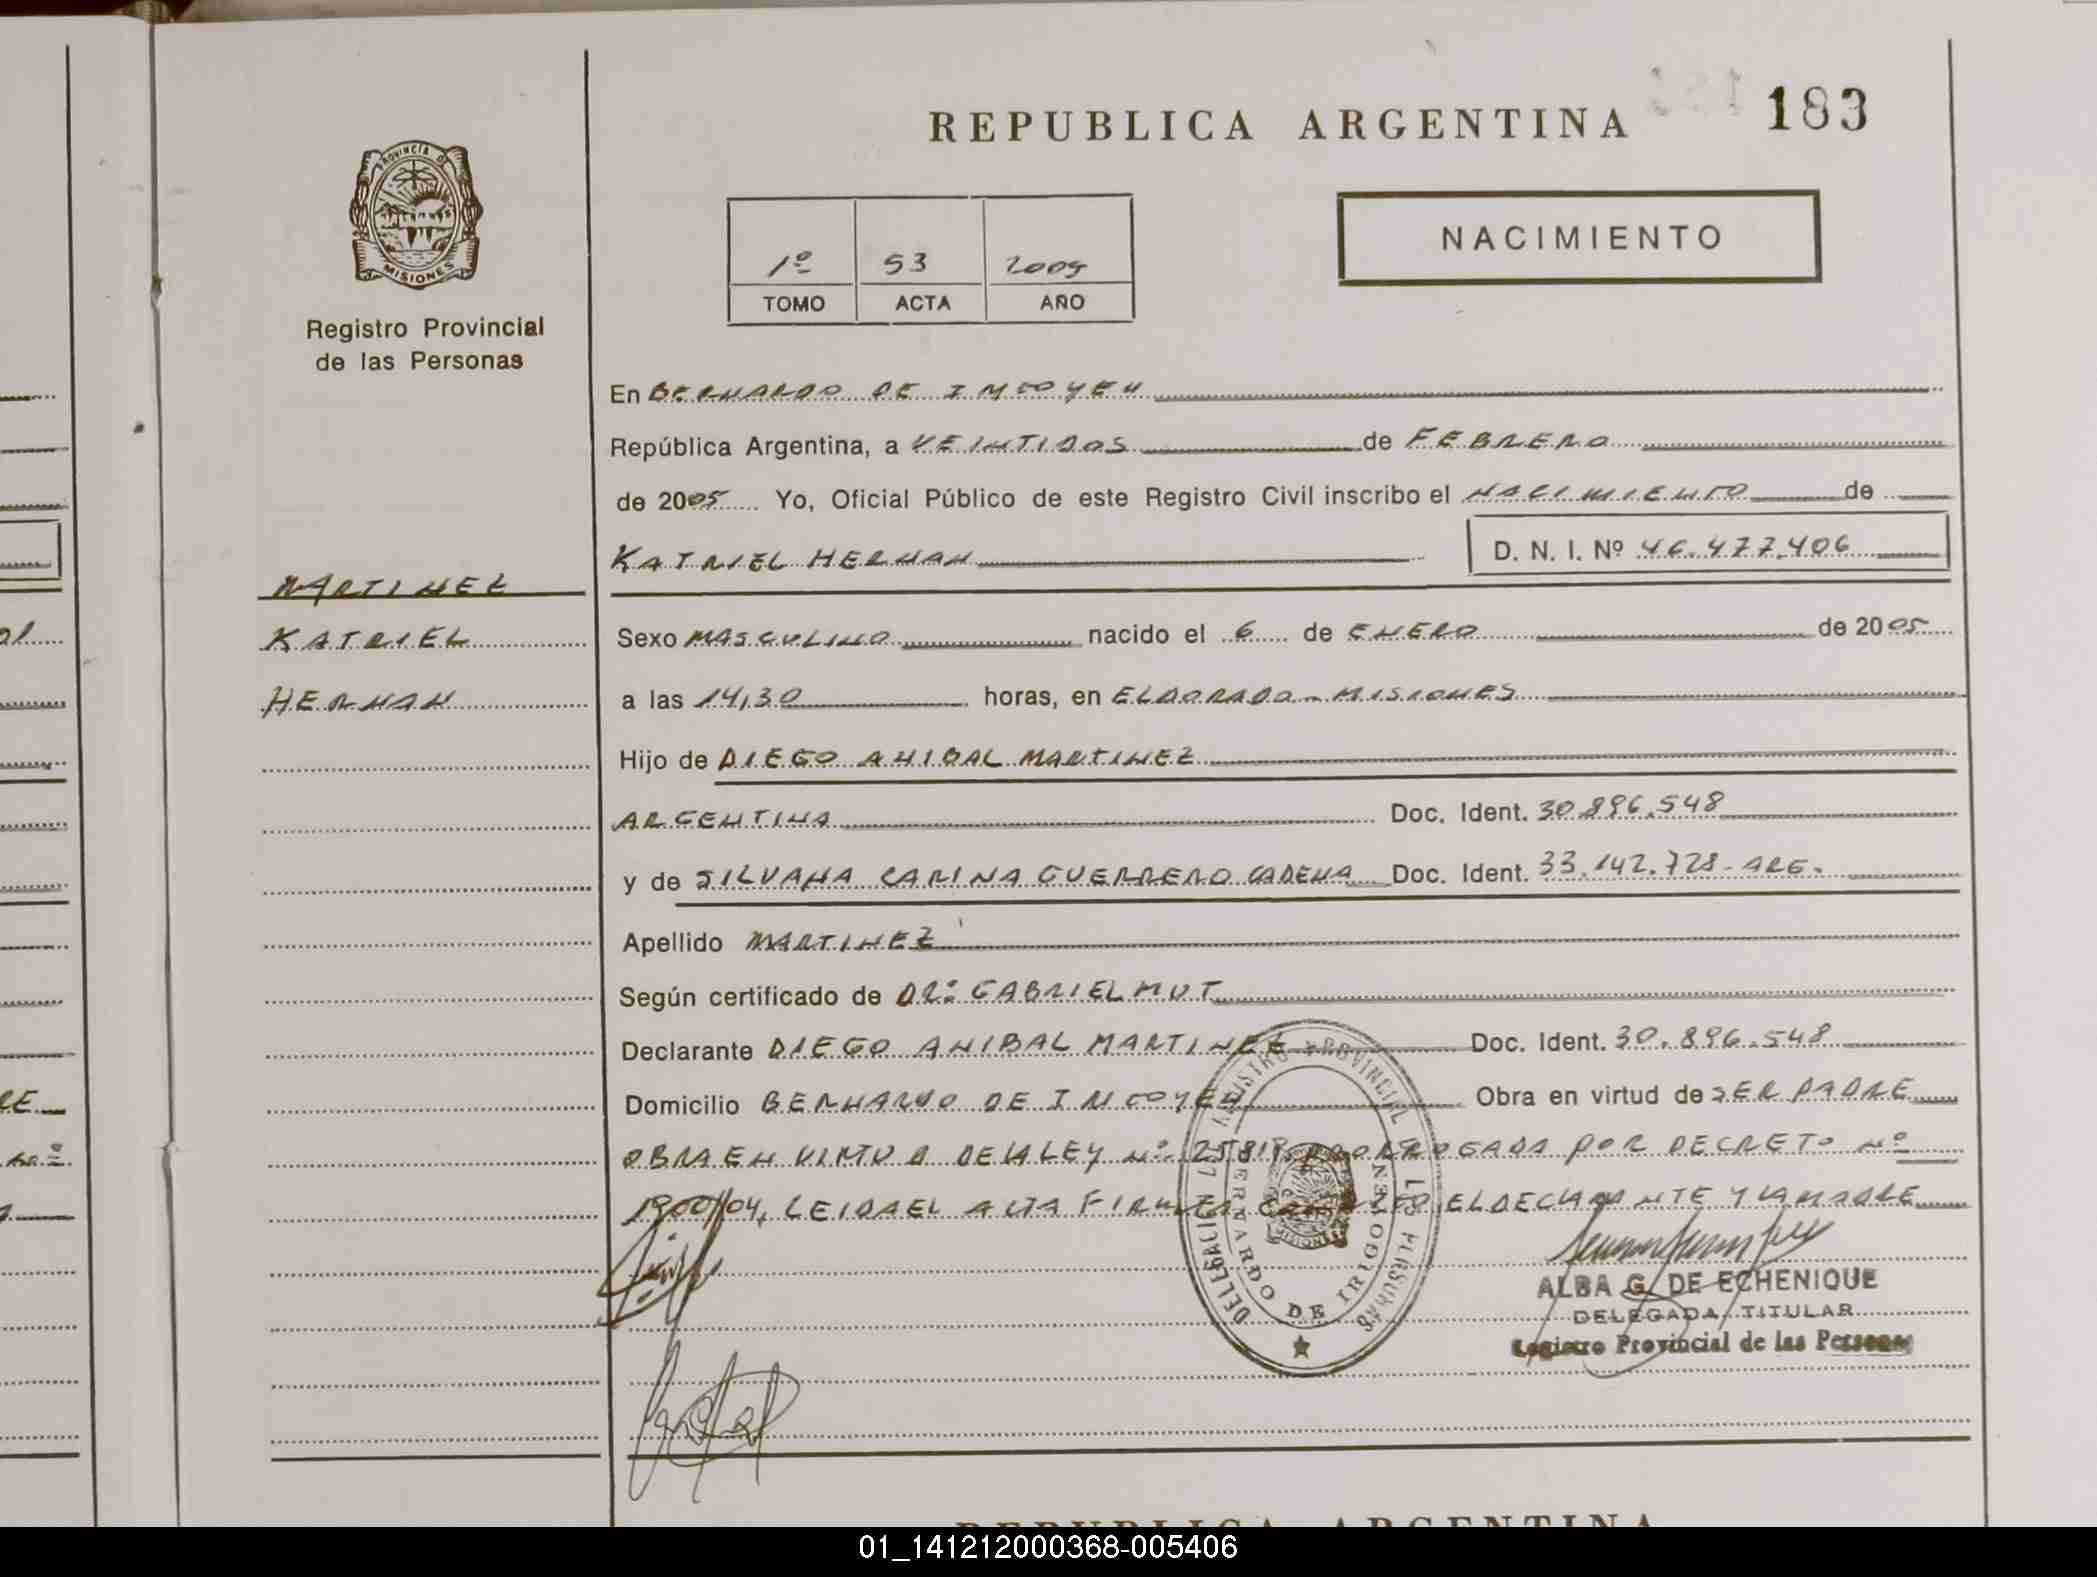 REPUBLICA ARGENTINA 183
PROVINCIA DE
MISIONES
Registro Provincial
de las Personas
1º 53 2005
TOMO ACTA AÑO
NACIMIENTO
En BERNARDO DE IRIGOYEN
República Argentina, a VEINTIDOS de FEBRERO
de 2005 Yo, Oficial Público de este Registro Civil inscribo el NACIMIENTO de
KATRIEL HERNAN D. N. I. Nº 46.477.406
MARTINEZ
KATRIEL
HERNAN
Sexo MASCULINO nacido el 6 de ENERO de 2005
a las 14,30 horas, en ELDORADO - MISIONES
Hijo de DIEGO ANIBAL MARTINEZ
ARGENTINA Doc. Ident. 30.896.548
y de SILVANA CARINA GUERRERO CADENA Doc. Ident. 33.142.728 - ARG.
Apellido MARTINEZ
Según certificado de DR. GABRIEL MUT
Declarante DIEGO ANIBAL MARTINEZ Doc. Ident. 30.896.548
Domicilio BERNARDO DE IRIGOYEN Obra en virtud de SER PADRE
OBRA EN VIRTUD DE LA LEY Nº 25819 PRORROGADA POR DECRETO Nº
1900/04, LEIDA EL ACTA FIRMAN EL DECLARANTE Y LA MADRE
REGISTRO PROVINCIAL DE LAS PERSONAS
DELEGACION
BERNARDO DE IRIGOYEN
ALBA G. DE ECHENIQUE
DELEGADA TITULAR
Registro Provincial de las Personas
REPUBLICA ARGENTINA
01_141212000368-005406